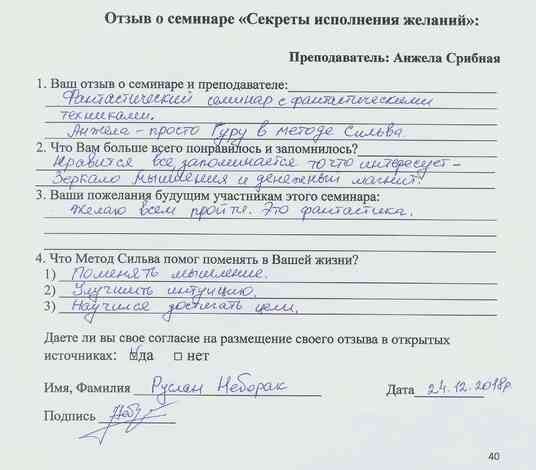 Отзыв о семинаре «Секреты исполнения желаний»:
Преподаватель: Анжела Срибная
1. Ваш отзыв о семинаре и преподавателе:
Фантастический семинар с фантастическими
техниками.
Анжела - просто Гуру в методе Сильва
2. Что Вам больше всего понравилось и запомнилось?
Нравится все, запоминается то что интересует -
Зеркало мышления и денежный магнит.
3. Ваши пожелания будущим участникам этого семинара:
Желаю всем пройти. Это фантастика.
4. Что Метод Сильва помог поменять в Вашей жизни?
1) Поменять мышление.
2) Улучшить интуицию.
3) Научился достигать цели.
Даете ли вы свое согласие на размещение своего отзыва в открытых
источниках: ☑да □ нет
Имя, Фамилия Руслан Неборак Дата 24.12.2018р
Подпись
40